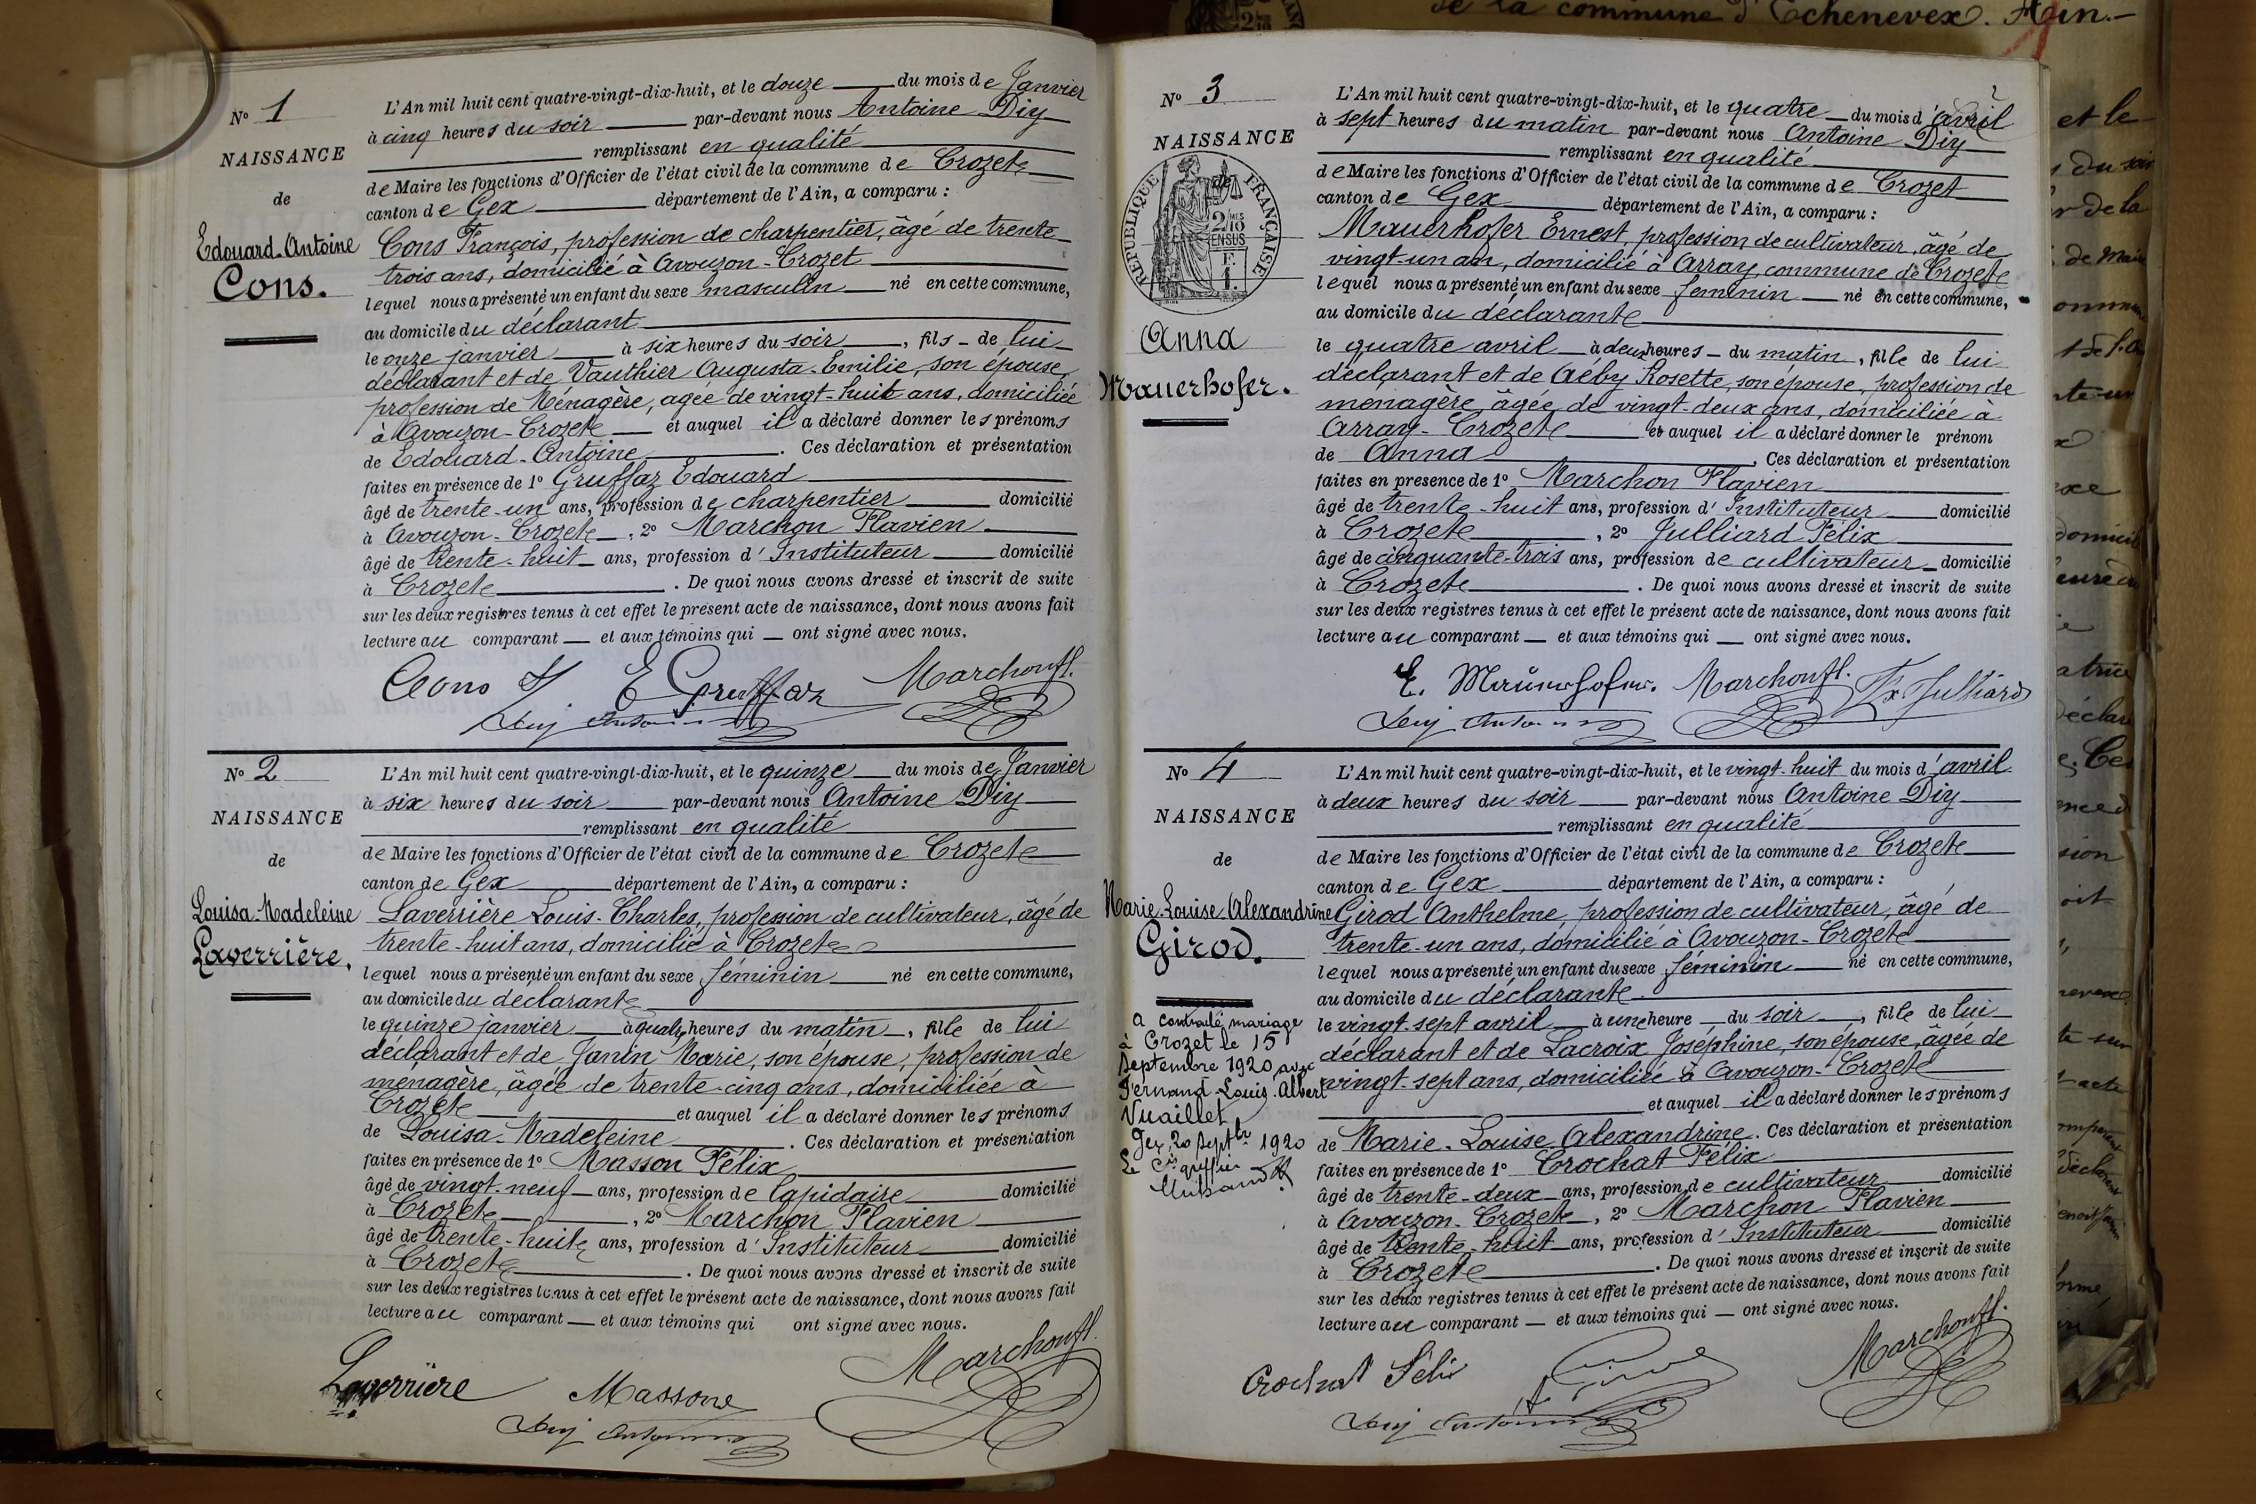 de la commune d'Echenevex. Ain.-
N° 1
NAISSANCE
de
Edouard-Antoine
Cons.
L'An mil huit cent quatre-vingt-dix-huit, et le douze du mois de Janvier
à cinq heures du soir par-devant nous Antoine Diy
remplissant en qualité
de Maire les fonctions d'Officier de l'état civil de la commune de Crozet
canton de Gex département de l'Ain, a comparu :
Cons François, profession de charpentier, âgé de trente
trois ans, domicilié à Avouzon-Crozet
lequel nous a présenté un enfant du sexe masculin né en cette commune,
au domicile du déclarant
le onze janvier à six heures du soir, fils de lui
déclarant et de Vauthier Augusta-Emilie, son épouse,
profession de Ménagère, agée de vingt-huit ans, domiciliée
à Avouzon-Crozet et auquel il a déclaré donner les prénoms
de Edouard-Antoine. Ces déclaration et présentation
faites en présence de 1° Gruffaz Edouard
âgé de trente-un ans, profession de charpentier domicilié
à Avouzon-Crozet, 2° Marchon Flavien
âgé de trente-huit ans, profession d'Instituteur domicilié
à Crozet. De quoi nous avons dressé et inscrit de suite
sur les deux registres tenus à cet effet le présent acte de naissance, dont nous avons fait
lecture au comparant et aux témoins qui ont signé avec nous.
Cons E Gruffaz Marchon fl.
Diy Antoine
N° 2
NAISSANCE
de
Louisa-Madeleine
Laverrière.
L'An mil huit cent quatre-vingt-dix-huit, et le quinze du mois de Janvier
à six heures du soir par-devant nous Antoine Diy
remplissant en qualité
de Maire les fonctions d'Officier de l'état civil de la commune de Crozet
canton de Gex département de l'Ain, a comparu :
Laverrière Louis-Charles, profession de cultivateur, âgé de
trente-huit ans, domicilié à Crozet
lequel nous a présenté un enfant du sexe féminin né en cette commune,
au domicile du déclarant
le quinze janvier à quatre heures du matin, fille de lui
déclarant et de Janin Marie, son épouse, profession de
ménagère, âgée de trente-cinq ans, domiciliée à
Crozet et auquel il a déclaré donner les prénoms
de Louisa-Madeleine. Ces déclaration et présentation
faites en présence de 1° Masson Félix
âgé de vingt-neuf ans, profession de lapidaire domicilié
à Crozet, 2° Marchon Flavien
âgé de trente-huit ans, profession d'Instituteur domicilié
à Crozet. De quoi nous avons dressé et inscrit de suite
sur les deux registres tenus à cet effet le présent acte de naissance, dont nous avons fait
lecture au comparant et aux témoins qui ont signé avec nous.
Laverrière Masson Marchon fl.
Diy Antoine
2
N° 3
NAISSANCE
de
RÉPUBLIQUE FRANÇAISE
2/10MES
EN SUS
F.
1.
Anna
Mauerhofer.
L'An mil huit cent quatre-vingt-dix-huit, et le quatre du mois d'avril
à sept heures du matin par-devant nous Antoine Diy
remplissant en qualité
de Maire les fonctions d'Officier de l'état civil de la commune de Crozet
canton de Gex département de l'Ain, a comparu :
Mauerhofer Ernest, profession de cultivateur, âgé de
vingt-un an, domicilié à Array, commune de Crozet
lequel nous a présenté un enfant du sexe féminin né en cette commune,
au domicile du déclarant
le quatre avril à deux heures du matin, fille de lui
déclarant et de Aéby Rosette, son épouse, profession de
ménagère âgée de vingt-deux ans, domiciliée à
Array-Crozet et auquel il a déclaré donner le prénom
de Anna. Ces déclaration et présentation
faites en présence de 1° Marchon Flavien
âgé de trente-huit ans, profession d'Instituteur domicilié
à Crozet, 2° Julliard Félix
âgé de cinquante-trois ans, profession de cultivateur domicilié
à Crozet. De quoi nous avons dressé et inscrit de suite
sur les deux registres tenus à cet effet le présent acte de naissance, dont nous avons fait
lecture au comparant et aux témoins qui ont signé avec nous.
E. Mauerhofer. Marchon fl. Fx Julliard
Diy Antoine
N° 4
NAISSANCE
de
Marie-Louise Alexandrine
Girod.
a contracté mariage
à Crozet le 15
Septembre 1920, avec
Fernand-Louis-Albert
Vuaillet
Gex, 20 Septbre 1920
Le Cis greffier
L'An mil huit cent quatre-vingt-dix-huit, et le vingt-huit du mois d'avril
à deux heures du soir par-devant nous Antoine Diy
remplissant en qualité
de Maire les fonctions d'Officier de l'état civil de la commune de Crozet
canton de Gex département de l'Ain, a comparu :
Girod Anthelme, profession de cultivateur, âgé de
trente-un ans, domicilié à Avouzon-Crozet
lequel nous a présenté un enfant du sexe féminin né en cette commune,
au domicile du déclarant
le vingt-sept avril à une heure du soir, fille de lui
déclarant et de Lacroix Joséphine, son épouse, âgée de
vingt-sept ans, domiciliée à Avouzon-Crozet
et auquel il a déclaré donner les prénoms
de Marie-Louise Alexandrine. Ces déclaration et présentation
faites en présence de 1° Crochat Félix
âgé de trente-deux ans, profession de cultivateur domicilié
à Avouzon-Crozet, 2° Marchon Flavien
âgé de trente-huit ans, profession d'Instituteur domicilié
à Crozet. De quoi nous avons dressé et inscrit de suite
sur les deux registres tenus à cet effet le présent acte de naissance, dont nous avons fait
lecture au comparant et aux témoins qui ont signé avec nous.
Crochat Félix Girod Marchon fl.
Diy Antoine